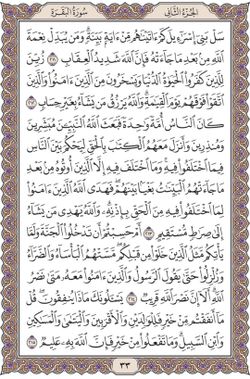 الجُزْءُ الثَّانِي
سُورَةُ البَقَرَةِ
سَلْ بَنِىٓ إِسْرَٰٓءِيلَ كَمْ ءَاتَيْنَٰهُم مِّنْ ءَايَةٍۭ بَيِّنَةٍ وَمَن يُبَدِّلْ نِعْمَةَ
ٱللَّهِ مِنۢ بَعْدِ مَا جَآءَتْهُ فَإِنَّ ٱللَّهَ شَدِيدُ ٱلْعِقَابِ ٢١١ زُيِّنَ
لِلَّذِينَ كَفَرُوا۟ ٱلْحَيَوٰةُ ٱلدُّنْيَا وَيَسْخَرُونَ مِنَ ٱلَّذِينَ ءَامَنُوا۟ وَٱلَّذِينَ
ٱتَّقَوْا۟ فَوْقَهُمْ يَوْمَ ٱلْقِيَٰمَةِ وَٱللَّهُ يَرْزُقُ مَن يَشَآءُ بِغَيْرِ حِسَابٍ ٢١٢
كَانَ ٱلنَّاسُ أُمَّةً وَٰحِدَةً فَبَعَثَ ٱللَّهُ ٱلنَّبِيِّـۧنَ مُبَشِّرِينَ
وَمُنذِرِينَ وَأَنزَلَ مَعَهُمُ ٱلْكِتَٰبَ بِٱلْحَقِّ لِيَحْكُمَ بَيْنَ ٱلنَّاسِ
فِيمَا ٱخْتَلَفُوا۟ فِيهِ وَمَا ٱخْتَلَفَ فِيهِ إِلَّا ٱلَّذِينَ أُوتُوهُ مِنۢ بَعْدِ
مَا جَآءَتْهُمُ ٱلْبَيِّنَٰتُ بَغْيًۢا بَيْنَهُمْ فَهَدَى ٱللَّهُ ٱلَّذِينَ ءَامَنُوا۟
لِمَا ٱخْتَلَفُوا۟ فِيهِ مِنَ ٱلْحَقِّ بِإِذْنِهِۦ وَٱللَّهُ يَهْدِى مَن يَشَآءُ
إِلَىٰ صِرَٰطٍ مُّسْتَقِيمٍ ٢١٣ أَمْ حَسِبْتُمْ أَن تَدْخُلُوا۟ ٱلْجَنَّةَ وَلَمَّا
يَأْتِكُم مَّثَلُ ٱلَّذِينَ خَلَوْا۟ مِن قَبْلِكُم مَّسَّتْهُمُ ٱلْبَأْسَآءُ وَٱلضَّرَّآءُ
وَزُلْزِلُوا۟ حَتَّىٰ يَقُولَ ٱلرَّسُولُ وَٱلَّذِينَ ءَامَنُوا۟ مَعَهُۥ مَتَىٰ نَصْرُ
ٱللَّهِ أَلَآ إِنَّ نَصْرَ ٱللَّهِ قَرِيبٌ ٢١٤ يَسْـَٔلُونَكَ مَاذَا يُنفِقُونَ قُلْ
مَآ أَنفَقْتُم مِّنْ خَيْرٍ فَلِلْوَٰلِدَيْنِ وَٱلْأَقْرَبِينَ وَٱلْيَتَٰمَىٰ وَٱلْمَسَٰكِينِ
وَٱبْنِ ٱلسَّبِيلِ وَمَا تَفْعَلُوا۟ مِنْ خَيْرٍ فَإِنَّ ٱللَّهَ بِهِۦ عَلِيمٌ ٢١٥
٣٣